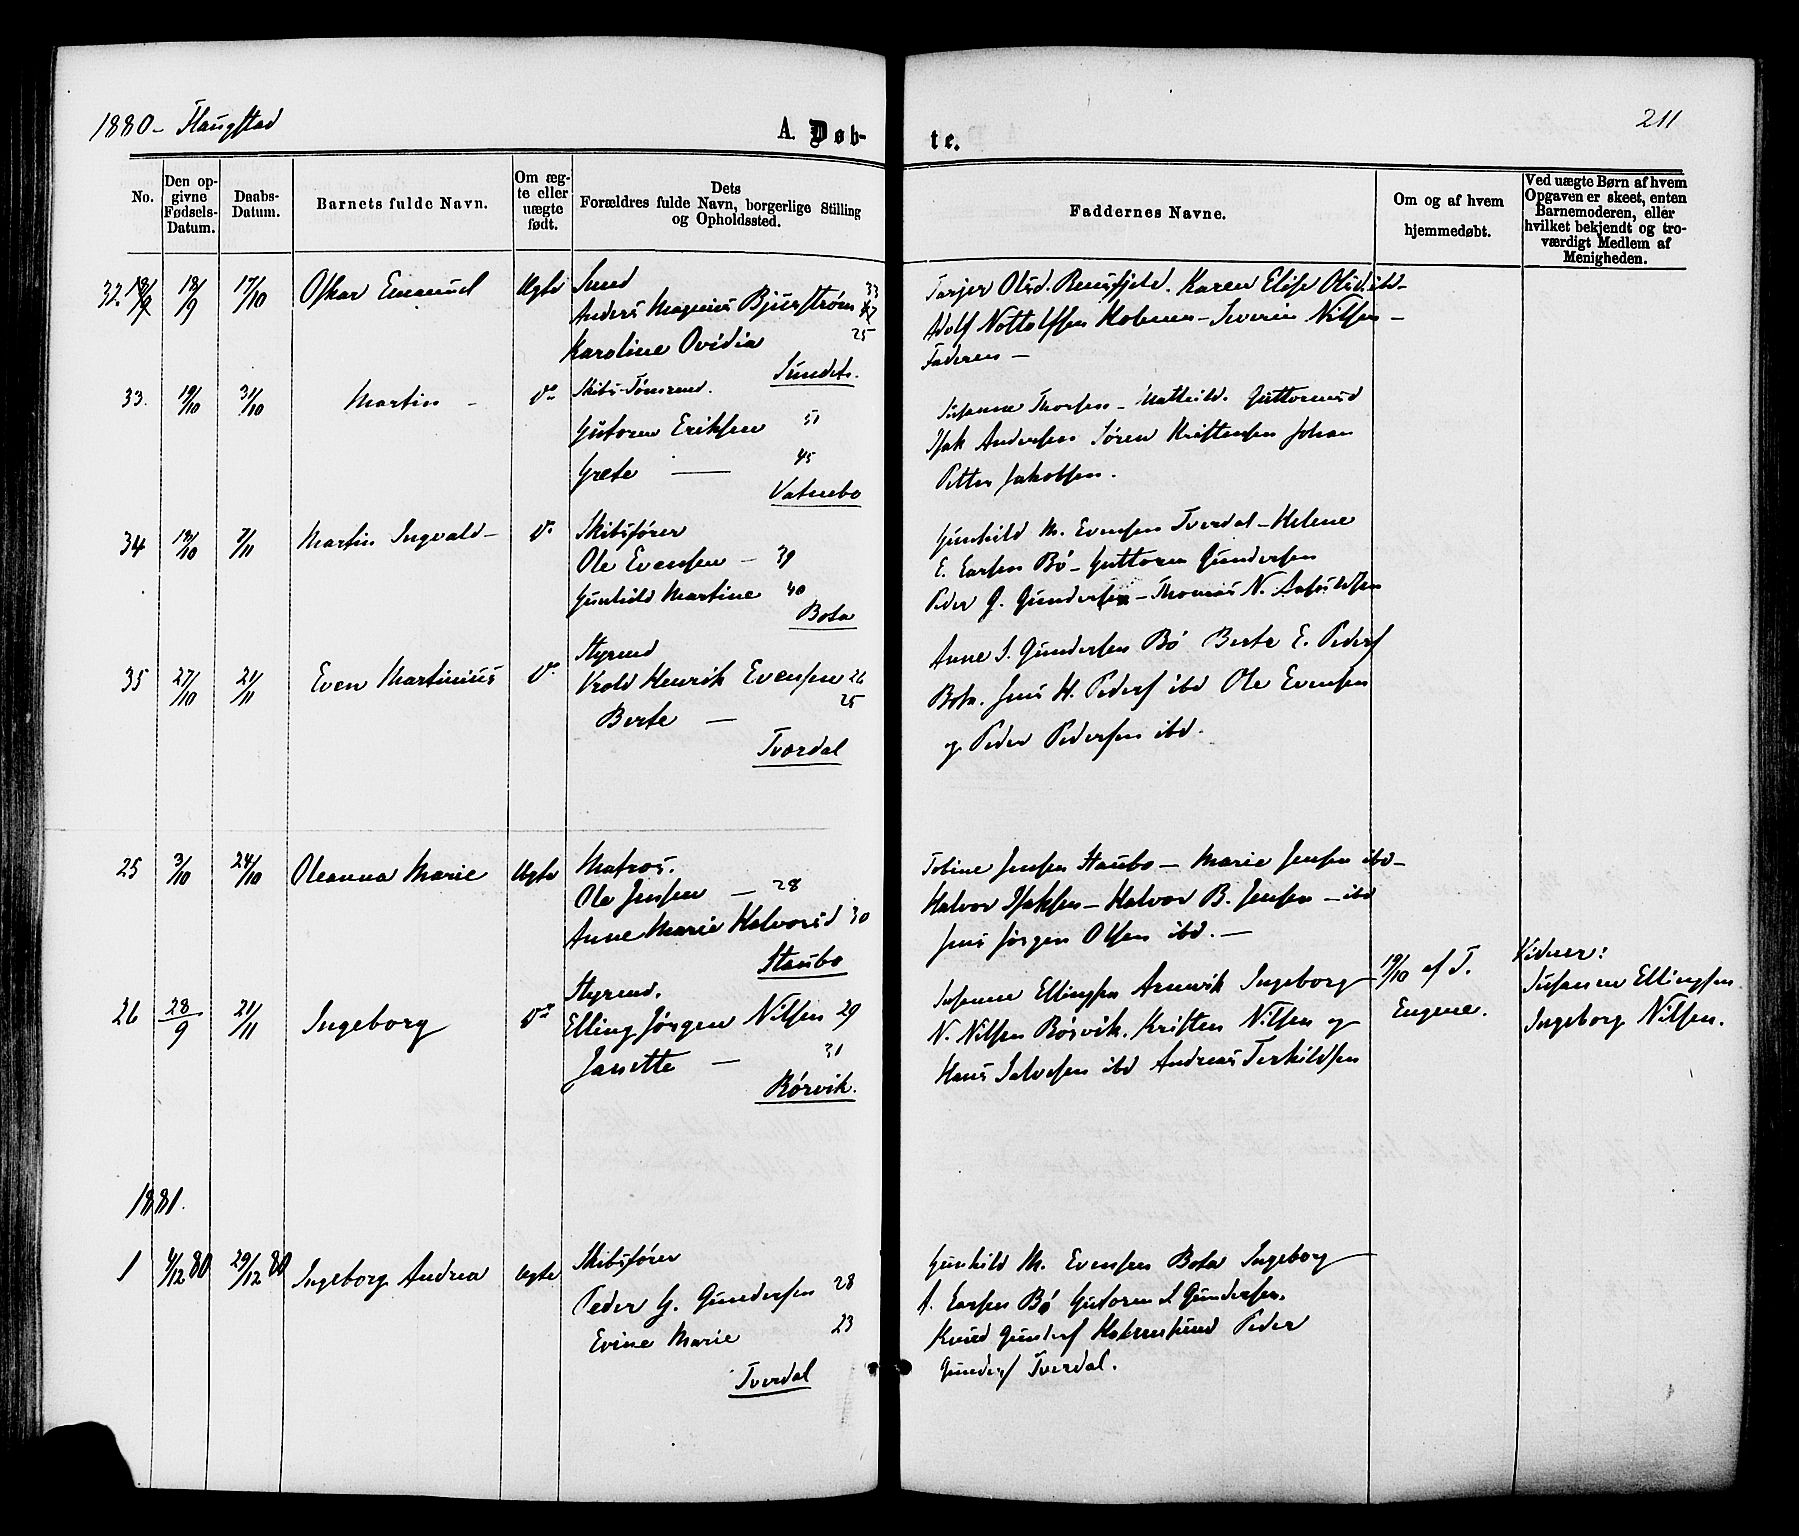 1880 - Flaugstad
A. Døb-
te.
211
No.
Den op-
givne
Fødsels-
Datum.
Daabs-
Datum.
Barnets fulde Navn.
Om æg-
te eller
uægte
født.
Dets
Forældres fulde Navn, borgerlige Stilling
og Opholdssted.
Faddernes Navne.
Om og af hvem
hjemmedøbt.
Ved uægte Børn af hvem
Opgaven er skeet, enten
Barnemoderen, eller
hvilket bekjendt og tro-
værdigt Medlem af
Menigheden.
32. 18/9 18/9 17/10 Oskar Emanuel Ægte Smed
Anders Magnus Bjurstrøm 33
Karoline Ovidia 25
Sundet.
Tarjer Olsd. Karen Elise Olsd ibd -
Adolf Nottolfsen Holmen - Severin Nilsen -
Faderen -
33. 19/10 31/10 Martin - do Skibs-Tømrmd.
Gutorm Eriksen 51
Grete - 45
Vatnebo
Susanne Thorsen - Mathild. Guttormsd
Isak Andersen Søren Kristensen Johan
Petter Jakobsen.
34 19/10 7/11 Martin Ingvald - do Skibsfører
Ole Evensen - 39
Gunhild Martine 40
Bota
Gunhild M. Evensen Tverdal - Helene
E. Larsen Bø - Guttorm Gundersen
Peder G. Gundersen - Thomas N.
35 27/10 21/11 Even Martinius do Styrmd
Krold Henrik Evensen 26
Berte - 25
Tverdal
Anne S. Gundersen Bø Berte E. Peders
Bota. Jens H. Peders ibd Ole Evensen
og Peder Pedersen ibd.
25 3/10 24/10 Oleanna Marie Ægte Matros.
Ole Jensen - 28
Anne Marie Halvorsd 30
Staubo
Tobine Jensen Staubo - Marie Jensen ibd -
Halvor Isaksen - Halvor B. Jensen - ibd
Jens Jørgen Olsen ibd. -
26 28/9 21/11 Ingeborg do Styrmd.
Elling Jørgen Nilsen 29
Janette - 31
Børvik.
Susanne Ellingsen Arnevik Ingeborg
N. Nilsen Børvik. Kristen Nilsen og
Hans Salvesen ibd Andreas Terkildsen
19/10 af T.
Eugene.
Vidner:
Susanne Ellingsen
Ingeborg Nilsen.
1881.
1 4/12 80 29/12 80 Ingeborg Andrea Ægte Skibsfører
Peder G. Gundersen 28
Evine Marie 23
Tverdal
Gunhild M. Evensen Bota Ingeborg
A. Larsen Bø Gutorm S Gundersen.
Knud Gunders Holmesund Peder
Gunders Tverdal.